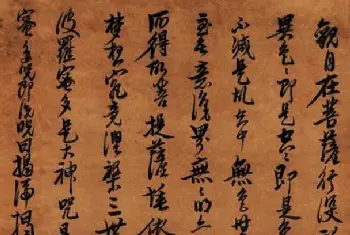 觀自在菩薩行深
異色〻即是空〻即是色
不減是故空中無色
至無意識界無無明亦
而得故菩提薩埵依
夢想究竟涅槃三世
波羅蜜多是大神咒是
蜜多咒即說咒曰揭諦揭